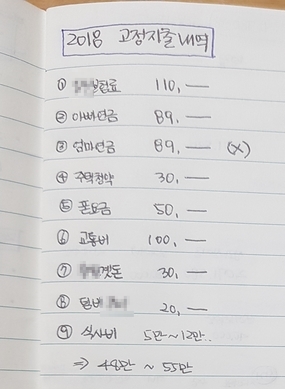 2018 고정지출내역
① 보험료 110,―
② 아빠연금 89,―
③ 엄마연금 89,― (X)
④ 주택청약 30,―
⑤ 폰요금 50,―
⑥ 교통비 100,―
⑦ 곗돈 30,―
⑧ 20,―
⑨ 식사비 5만~12만..
⇒ 48만 ~ 55만